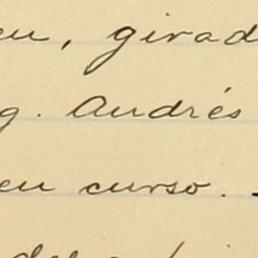 en, girad
g. Andrés
en curso.